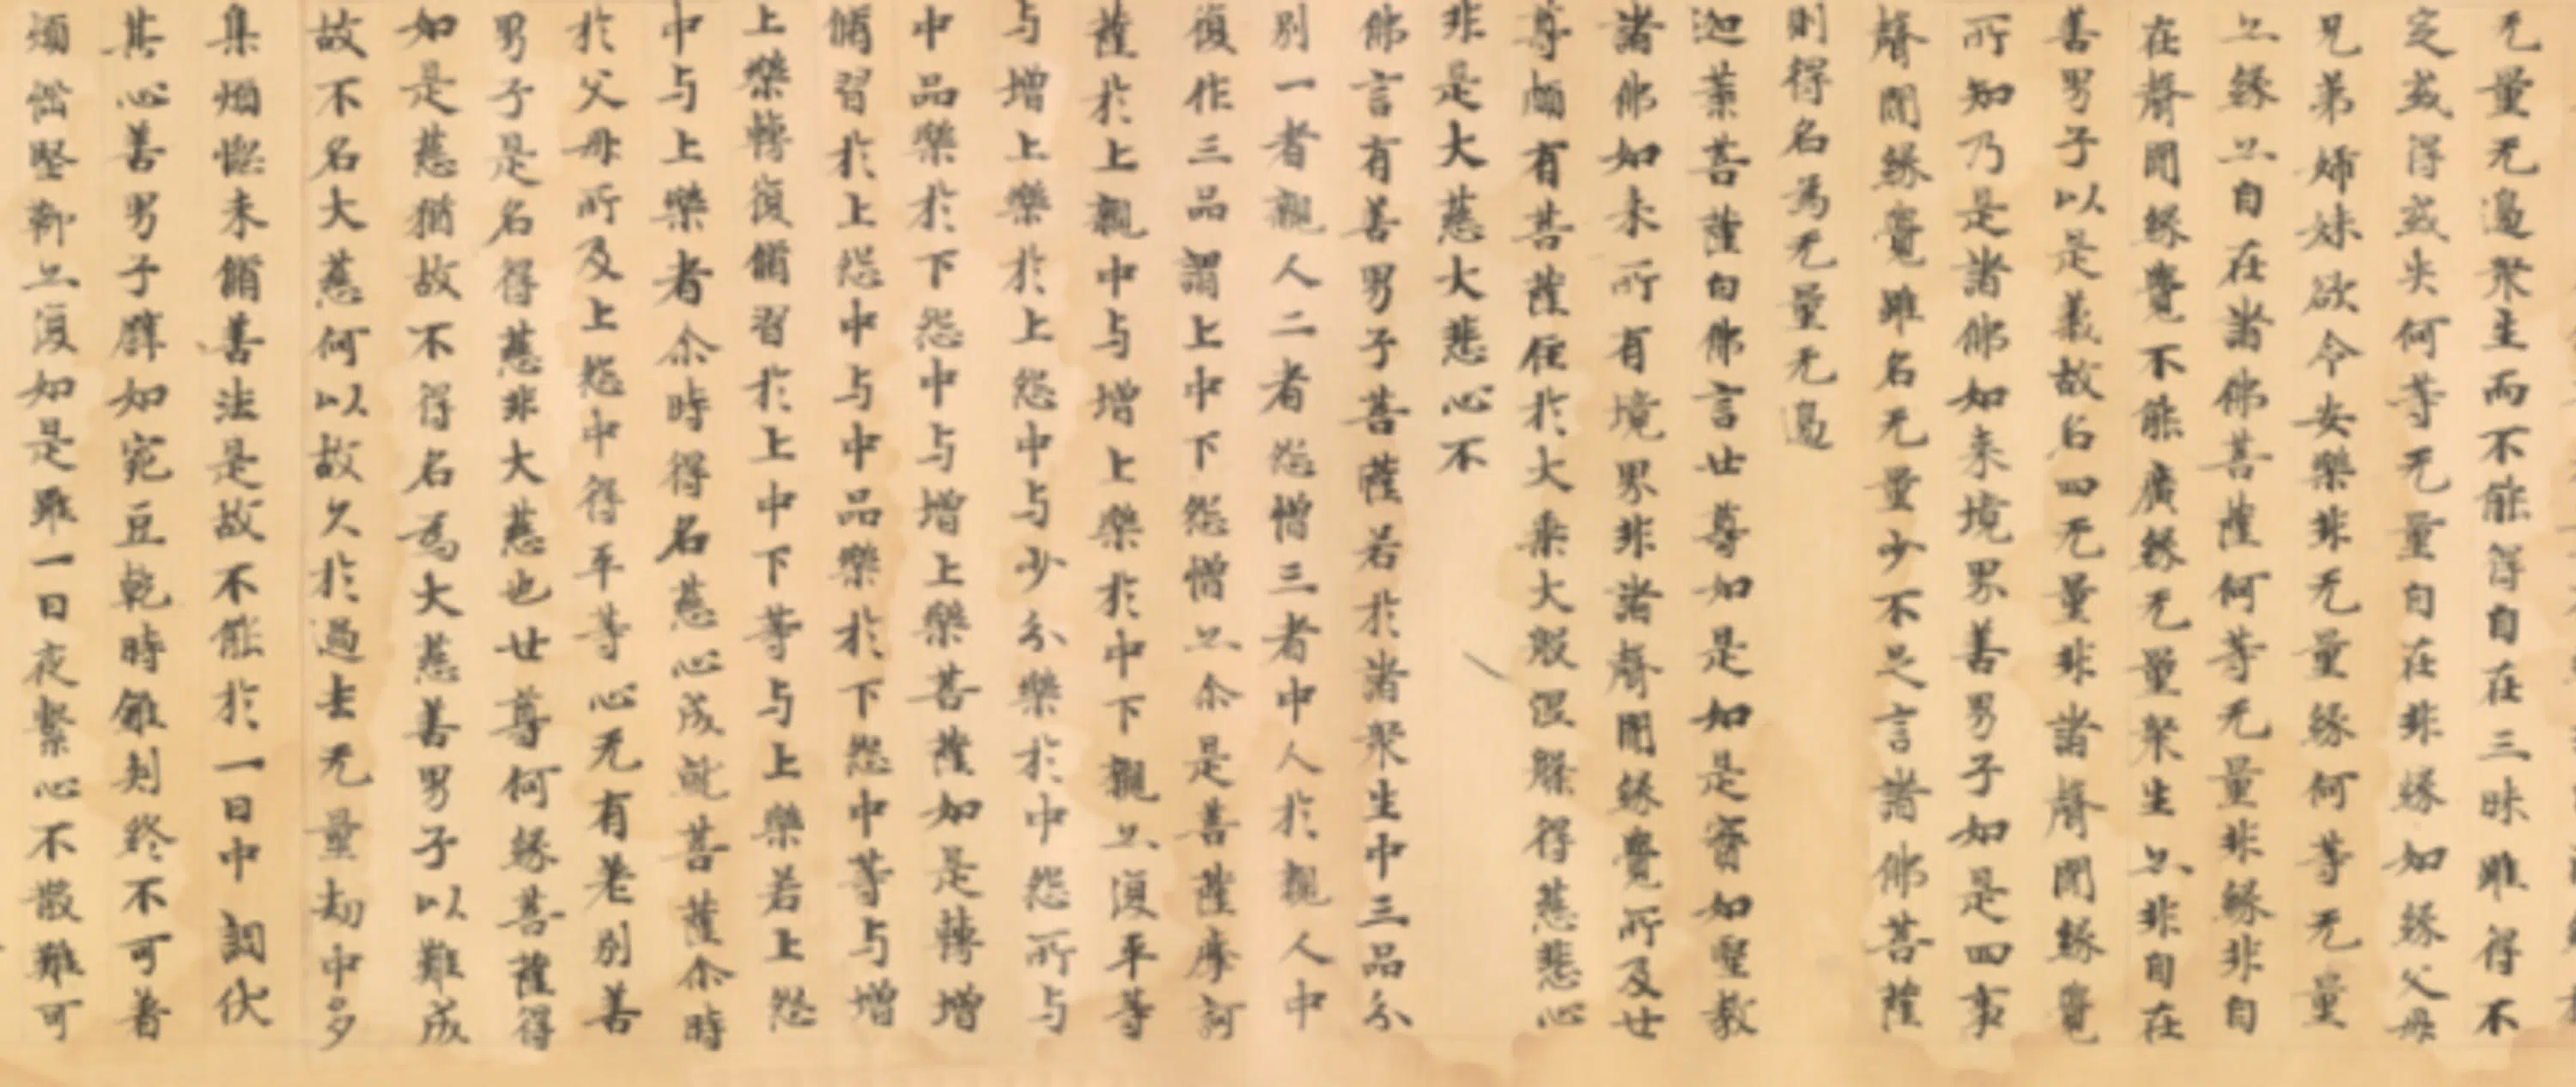 无量无邊眾生而不能得自在三昧雖得不
定或得或失何等无量自在非緣如緣父母
兄弟姊妹欲令安樂非无量緣何等无量
亦緣亦自在諸佛菩薩何等无量非緣非自
在聲聞緣覺不能廣緣无量眾生亦非自在
善男子以是義故名四无量非諸聲聞緣覺
所知乃是諸佛如来境界善男子如是四事
聲聞緣覺雖名无量少不足言諸佛菩薩
則得名為无量无邊
迦葉菩薩白佛言世尊如是如是實如聖教
諸佛如来所有境界非諸聲聞緣覺所及世
尊頗有菩薩住於大乘大般涅槃得慈悲心
非是大慈大悲心不
佛言有善男子菩薩若於諸眾生中三品分
別一者親人二者怨憎三者中人於親人中
復作三品謂上中下怨憎亦尒是菩薩摩訶
薩於上親中与增上樂於中下親亦復平等
与增上樂於上怨中与少分樂於中怨所与
中品樂於下怨中与增上樂菩薩如是轉增
脩習於上怨中与中品樂於下怨中等与增
上樂轉復脩習於上中下等与上樂若上怨
中与上樂者尒時得名慈心成就菩薩尒時
於父母所及上怨中得平等心无有差別善
男子是名得慈非大慈也世尊何緣菩薩得
如是慈猶故不得名為大慈善男子以難成
故不名大慈何以故久於過去无量劫中多
集煩惱未脩善法是故不能於一日中調伏
其心善男子辟如豌豆乾時錐刾終不可著
煩惱堅鞕亦復如是雖一日夜繫心不散難可